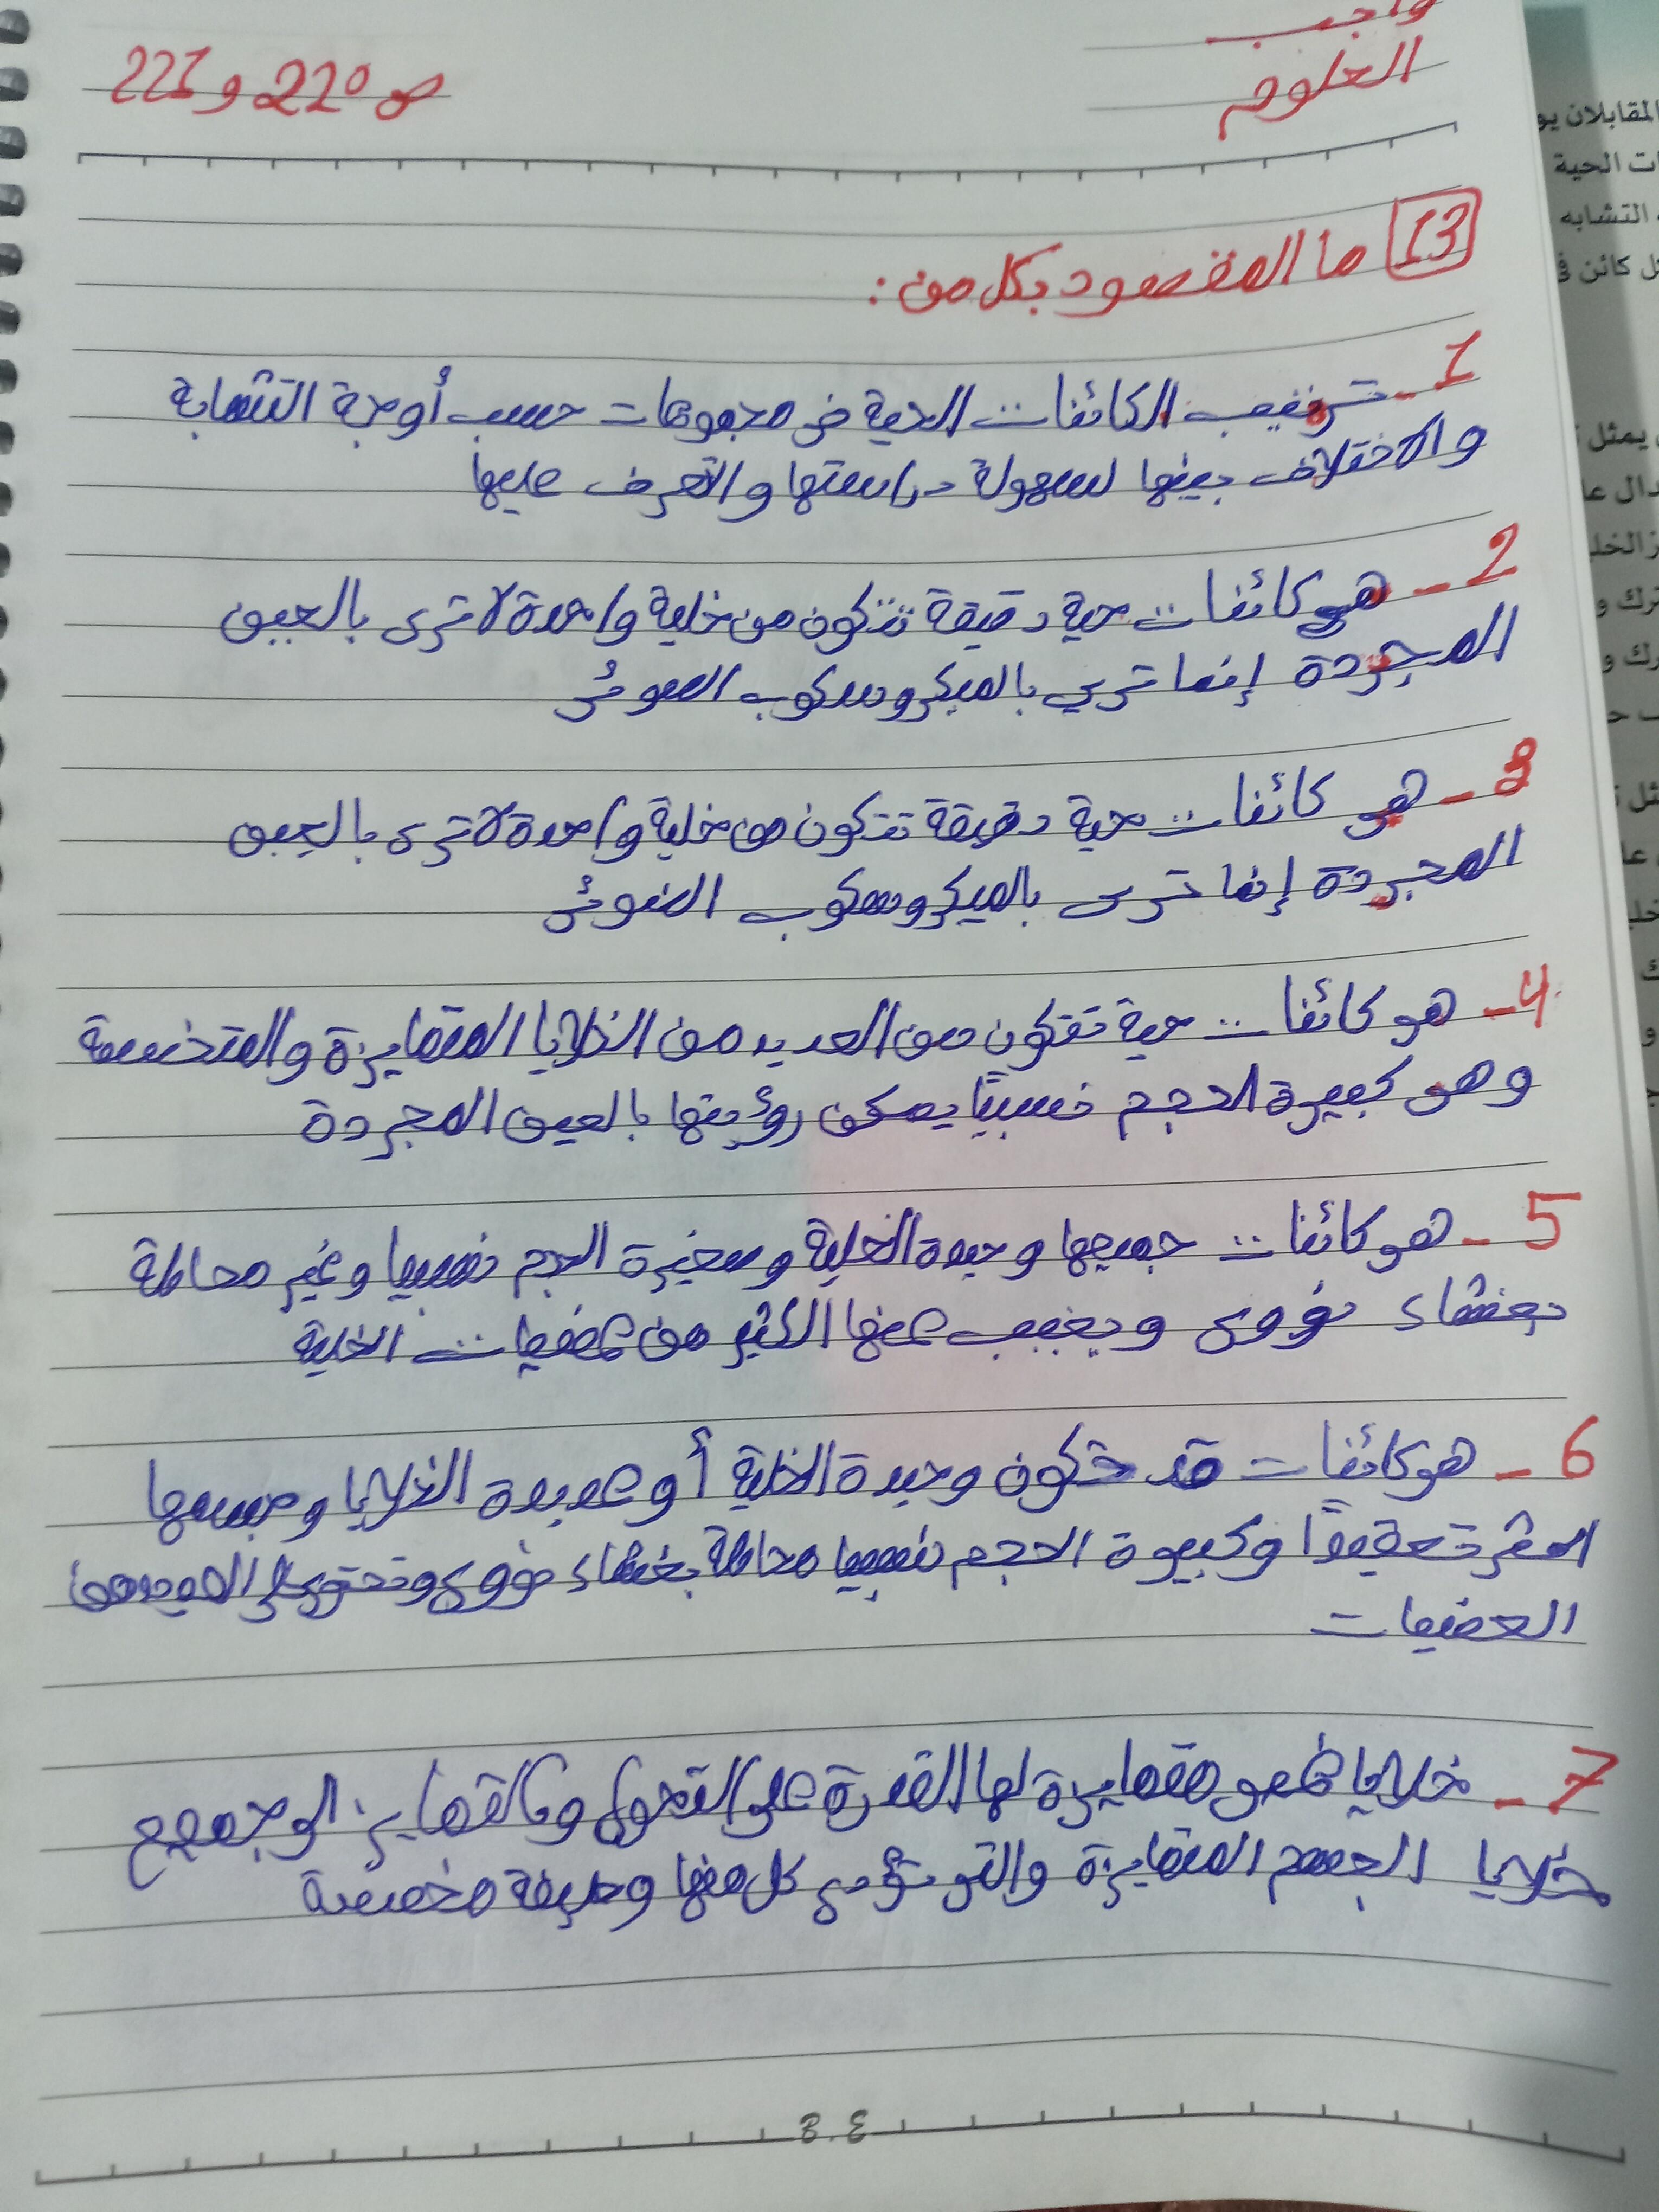 واجب
العلوم
ص 220 و 221
13 ما المقصود بكل من :
1- ترتيب الكائنات الحية في مجموعات حسب أوجة التشابة
والاختلاف بينها لسهولة دراستها والتعرف عليها
2- هو كائنات حية دقيقة تتكون من خلية واحدة لا ترى بالعين
المجردة إنما تري بالميكروسكوب الضوئي
3- هو كائنات حية دقيقة تتكون من خلية واحدة لا ترى بالعين
المجردة إنما ترى بالميكروسكوب الضوئي
4- هو كائنات حية تتكون من العديد من الخلايا المتمايزة والمتخصصة
وهو كبيرة الحجم نسبيًا يمكن رؤيتها بالعين المجردة
5- هو كائنات جميعها وحيدة الخلية وصغيرة الحجم نسبيا وغير محاطة
بغشاء نووى ويغيب عنها الكثير من عضيات الخلية
6- هو كائنات قد تكون وحيدة الخلية أو عديدة الخلايا وجميعها
اكثر تعقيدًا وكبيرة الحجم نسبيا محاطة بغشاء نووى وتحتوى على العديد من
العضيات
7- خلايا غير متمايزة لها القدرة على التحول والتمايز الى جميع
خلايا الجسم المتمايزة والتي تؤدي كل منها وظيفة مخصصة
المقابلان يو
ات الحية
التشابه
ل كائن ف
يمثل
دال عا